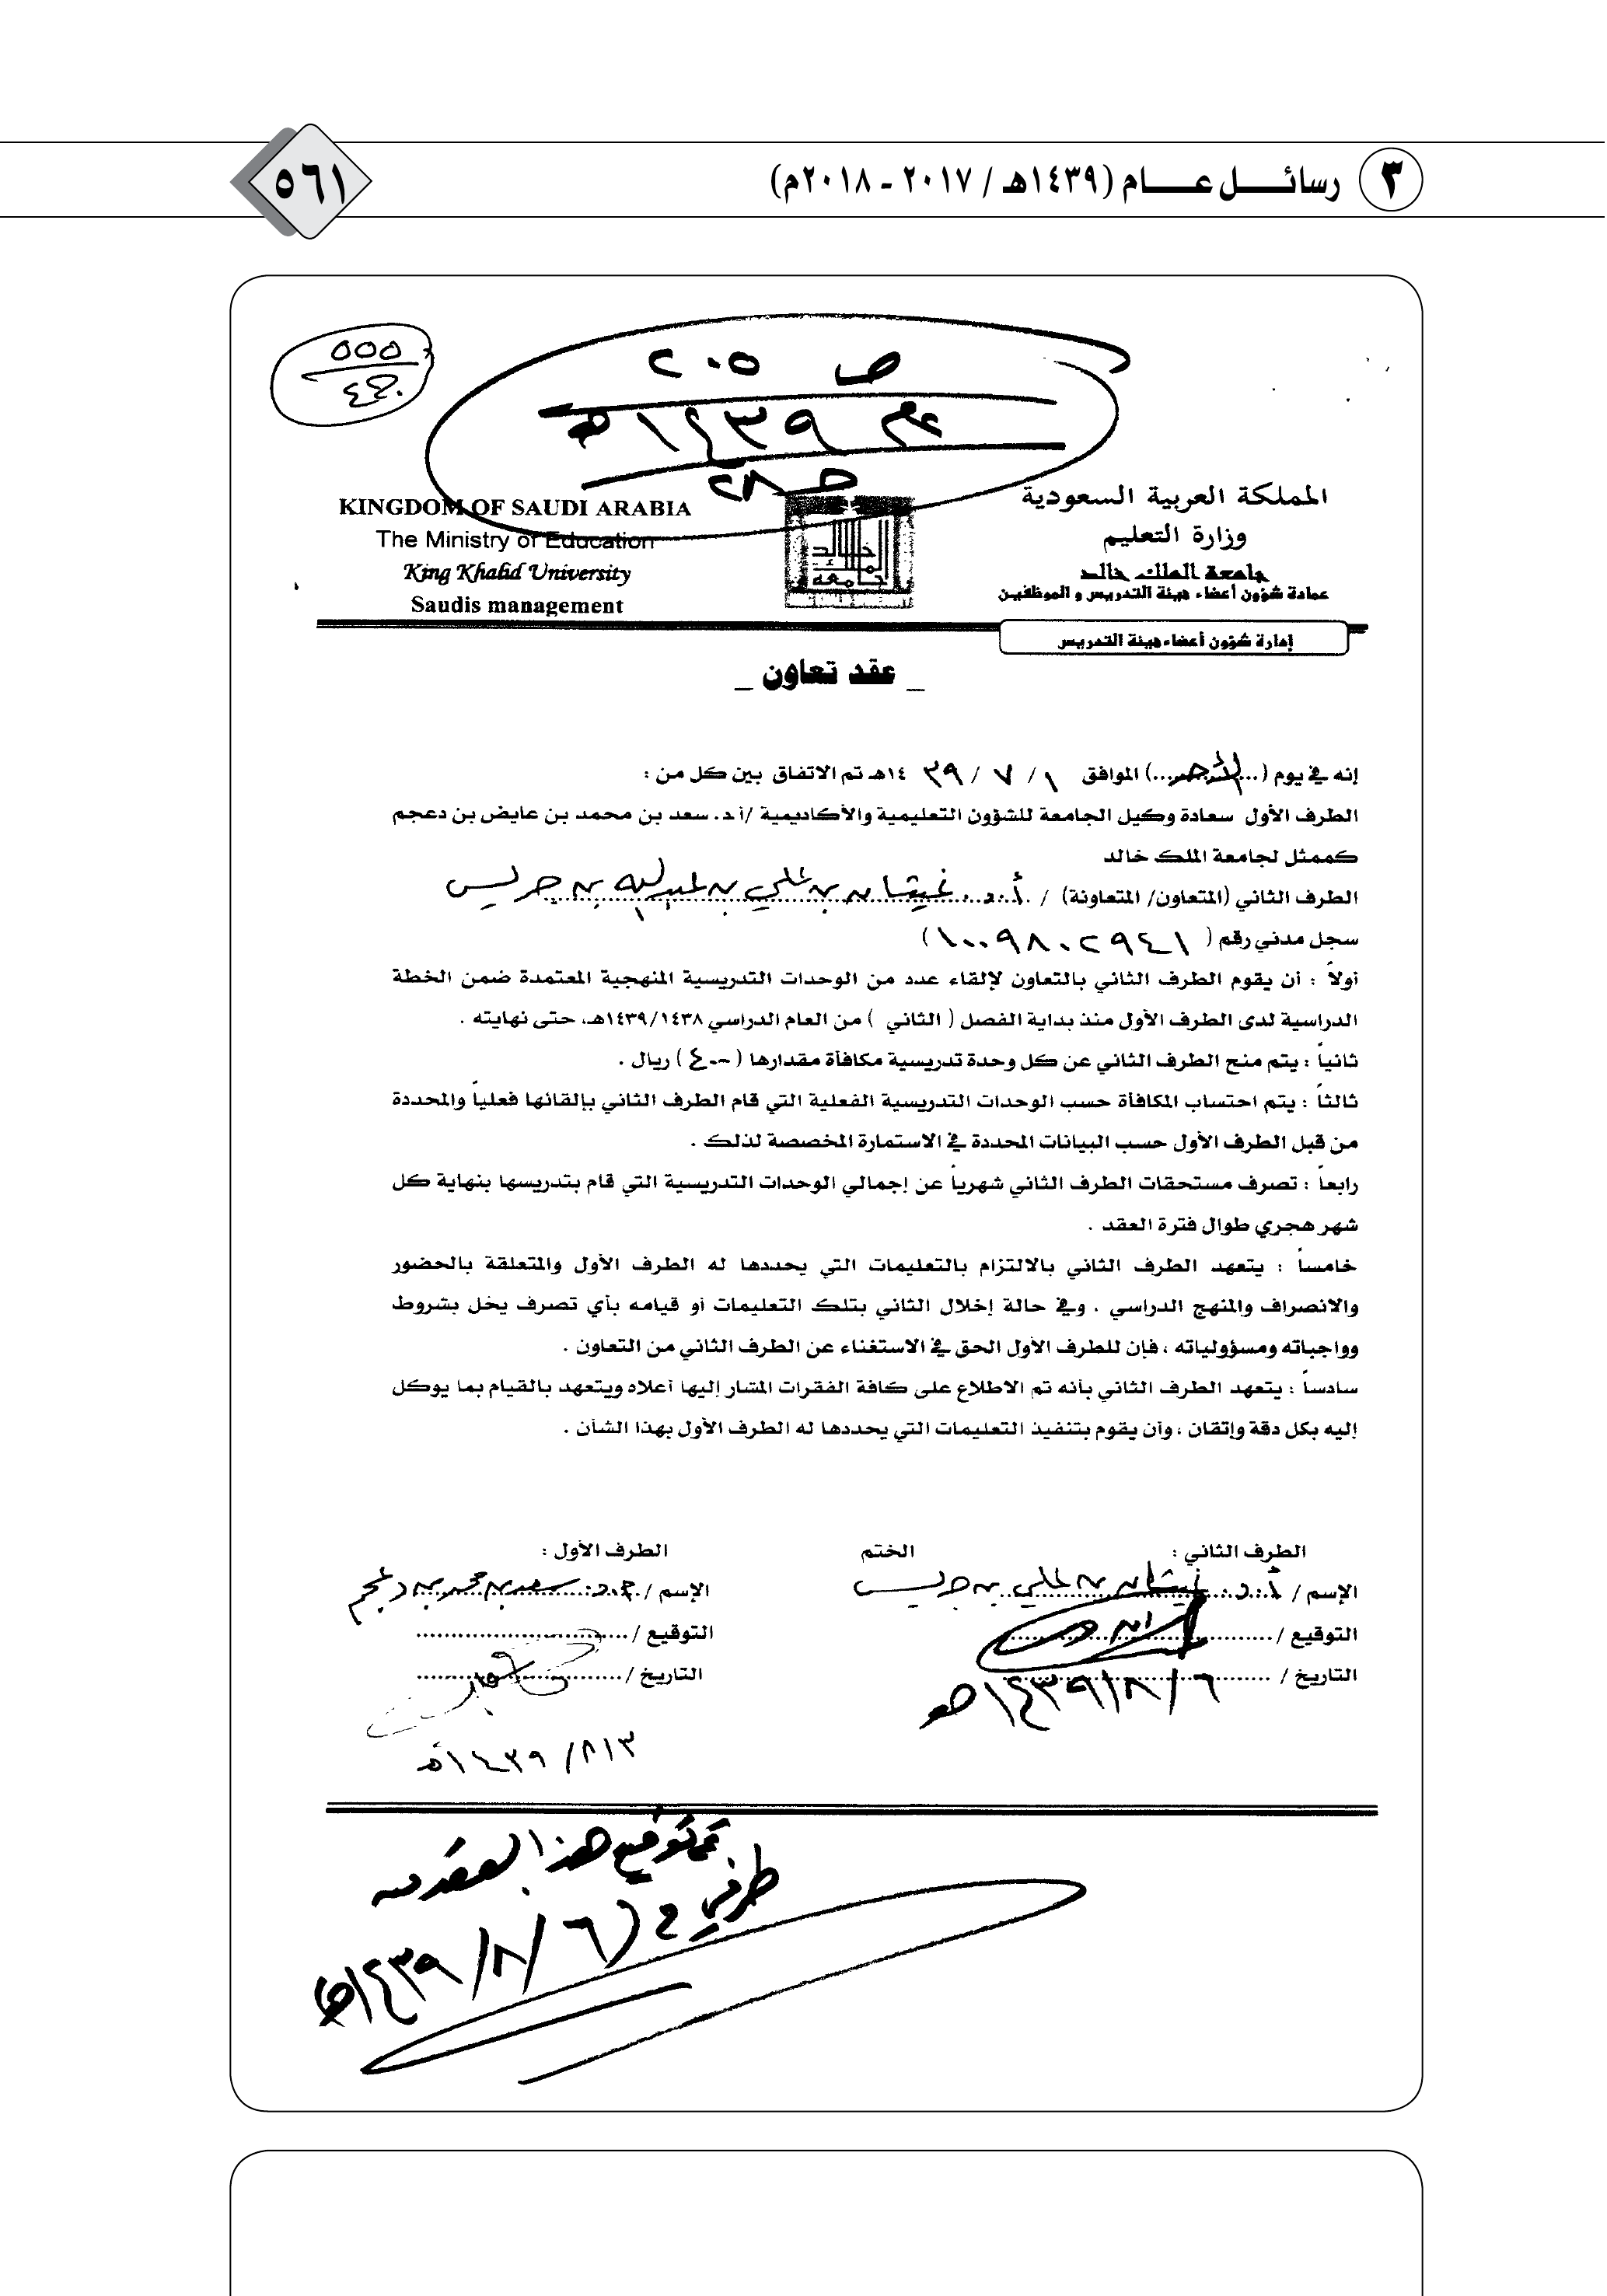 ٣ رسائـــل عـــام (١٤٣٩هـ / ٢٠١٧ - ٢٠١٨م)
٥٦١
٥٥٥
ص ٢٠٥
١٤٣٩هـ
KINGDOM OF SAUDI ARABIA
The Ministry of Education
King Khalid University
Saudis management
المملكة العربية السعودية
وزارة التعليم
جامعة الملك خالد
عمادة شؤون أعضاء هيئة التدريس و الموظفين
إدارة شؤون أعضاء هيئة التدريس
_ عقد تعاون _
إنه في يوم (......) الموافق ١ / ٧ / ١٤٣٩هـ تم الاتفاق بين كل من :
الطرف الأول سعادة وكيل الجامعة للشؤون التعليمية والأكاديمية /أ.د. سعد بن محمد بن عايض بن دعجم
كممثل لجامعة الملك خالد
الطرف الثاني (المتعاون/ المتعاونة) / أ.د. غيثان بن علي بن عبدالله بن جريس
سجل مدني رقم ( ١٠٠٩٨٠٢٩٤١ )
أولاً : أن يقوم الطرف الثاني بالتعاون لإلقاء عدد من الوحدات التدريسية المنهجية المعتمدة ضمن الخطة
الدراسية لدى الطرف الأول منذ بداية الفصل ( الثاني ) من العام الدراسي ١٤٣٩/١٤٣٨هـ، حتى نهايته .
ثانياً : يتم منح الطرف الثاني عن كل وحدة تدريسية مكافأة مقدارها ( ٤٠٠ ) ريال .
ثالثاً : يتم احتساب المكافأة حسب الوحدات التدريسية الفعلية التي قام الطرف الثاني بإلقائها فعلياً والمحددة
من قبل الطرف الأول حسب البيانات المحددة في الاستمارة المخصصة لذلك .
رابعاً : تصرف مستحقات الطرف الثاني شهرياً عن إجمالي الوحدات التدريسية التي قام بتدريسها بنهاية كل
شهر هجري طوال فترة العقد .
خامساً : يتعهد الطرف الثاني بالالتزام بالتعليمات التي يحددها له الطرف الأول والمتعلقة بالحضور
والانصراف والمنهج الدراسي . وفي حالة إخلال الثاني بتلك التعليمات أو قيامه بأي تصرف يخل بشروط
وواجباته ومسؤولياته ، فإن للطرف الأول الحق في الاستغناء عن الطرف الثاني من التعاون .
سادساً : يتعهد الطرف الثاني بأنه تم الاطلاع على كافة الفقرات المشار إليها أعلاه ويتعهد بالقيام بما يوكل
إليه بكل دقة وإتقان ، وأن يقوم بتنفيذ التعليمات التي يحددها له الطرف الأول بهذا الشأن .
الطرف الثاني : الختم الطرف الأول :
الإسم / أ.د. غيثان بن علي بن جريس
الإسم / أ.د. سعد بن محمد بن دعجم
التوقيع / التوقيع /
التاريخ / ٦ / ٨ / ١٤٣٩هـ
التاريخ /
٣ / ٨ / ١٤٣٩هـ
تم توقيع هذا العقد من
طرفي في (٦ / ٨ / ١٤٣٩هـ)